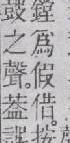 鏜爲假借。按
鼓之聲。葢